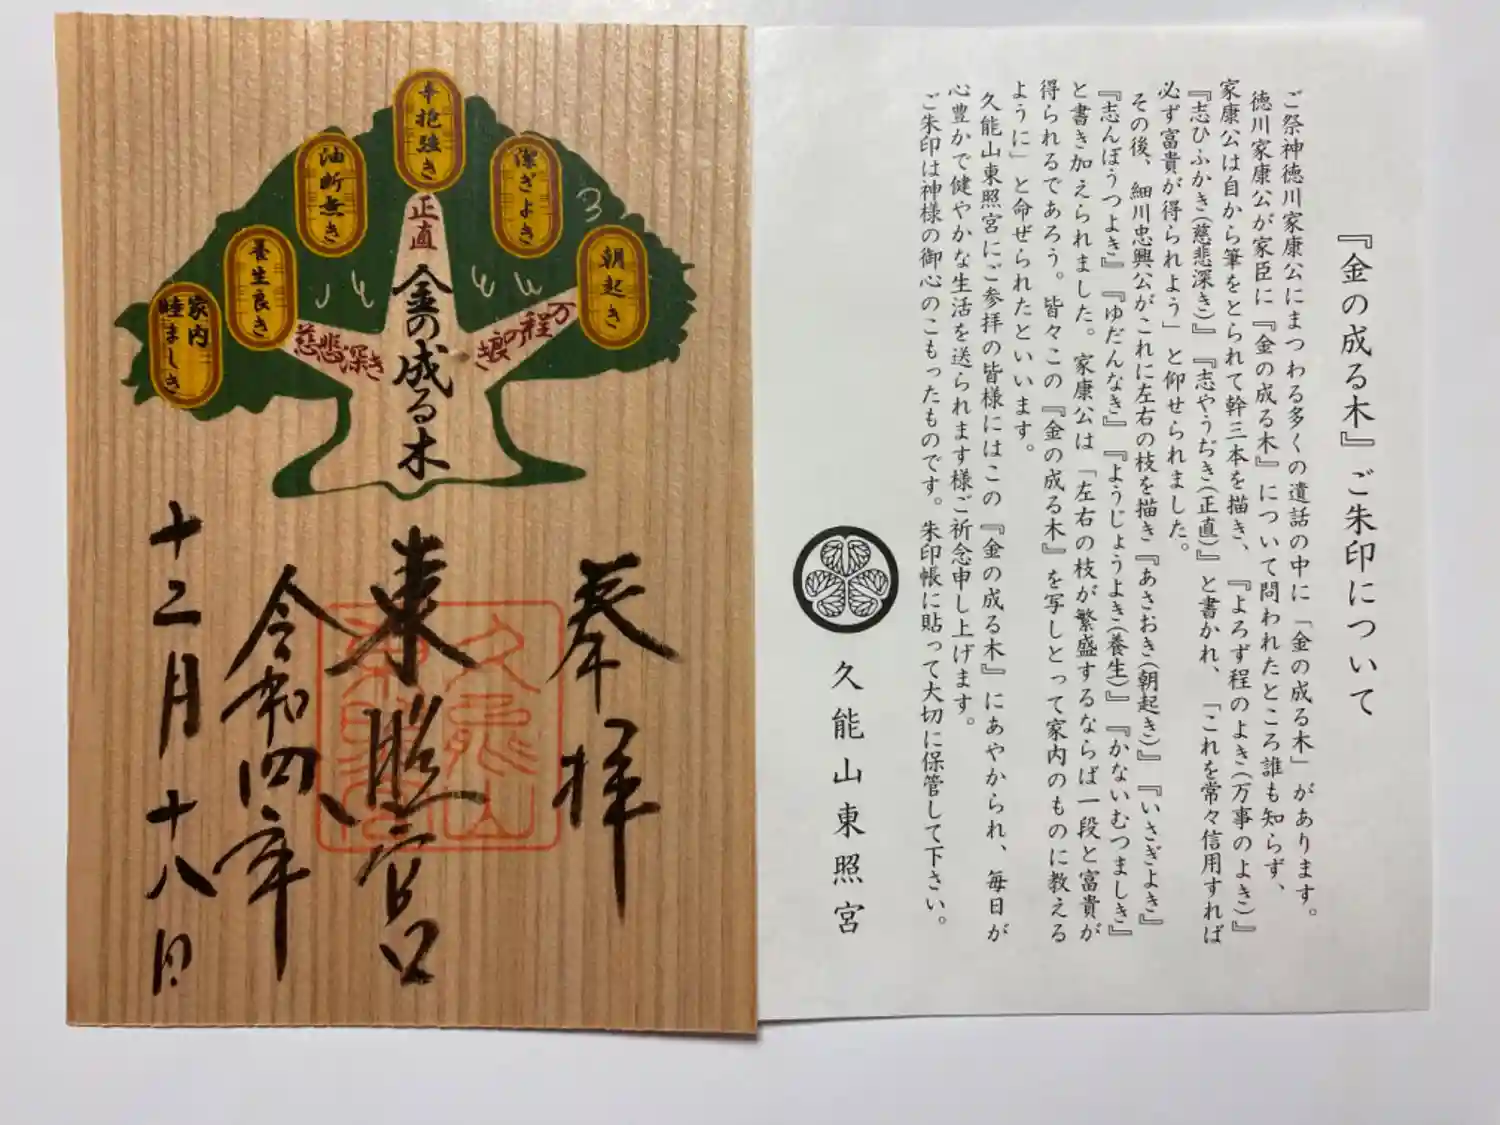 辛抱強き
潔ぎよき
油断無き
朝起き
養生良き
家内
睦ましき
正直
万
程の
良き
慈悲深き
金の成る木
奉拝
東照宮
令和四年
十二月十八日
『金の成る木』ご朱印について
ご祭神徳川家康公にまつわる多くの遺話の中に「金の成る木」があります。
徳川家康公が家臣に『金の成る木』について問われたところ誰も知らず、
家康公は自から筆をとられて幹三本を描き、『よろず程のよき(万事のよき)』
『志ひふかき(慈悲深き)』『志やうぢき(正直)』と書かれ、「これを常々信用すれば
必ず富貴が得られよう」と仰せられました。
その後、細川忠興公がこれに左右の枝を描き『あさおき(朝起き)』『いさぎよき』
『志んぼうつよき』『ゆだんなき』『ようじょうよき(養生)』『かないむつましき』
と書き加えられました。家康公は「左右の枝が繁盛するならば一段と富貴が
得られるであろう。皆々この『金の成る木』を写しとって家内のものに教える
ように」と命ぜられたといいます。
久能山東照宮にご参拝の皆様にはこの『金の成る木』にあやかられ、毎日が
心豊かで健やかな生活を送られます様ご祈念申し上げます。
ご朱印は神様の御心のこもったものです。朱印帳に貼って大切に保管して下さい。
久能山東照宮